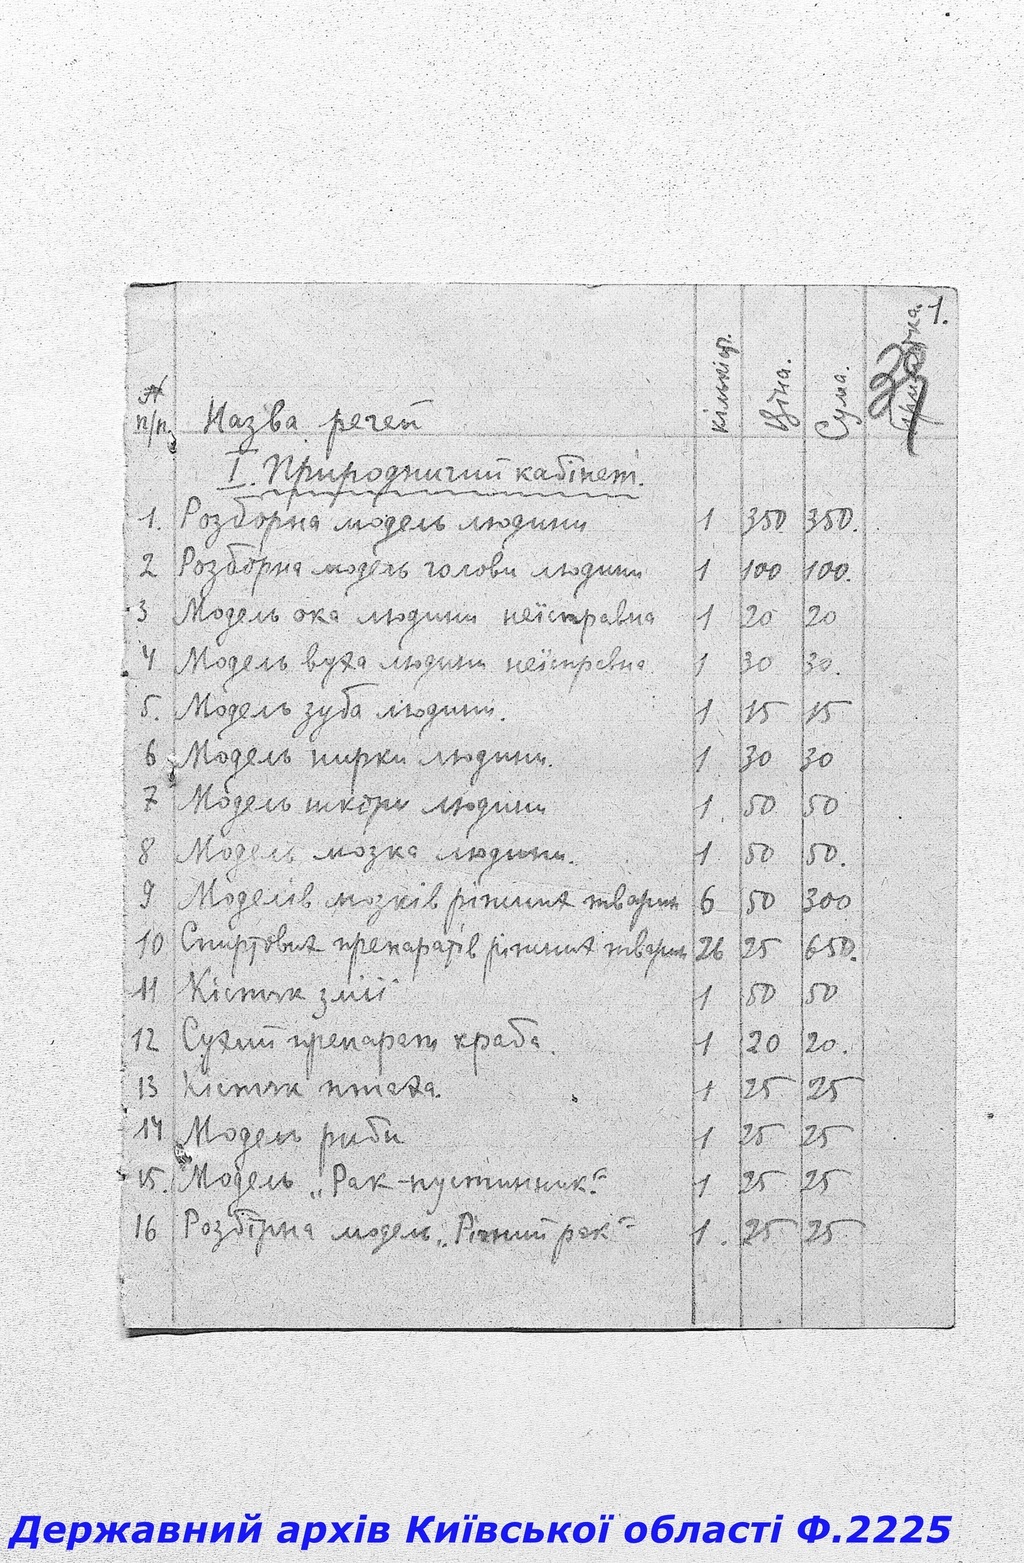 1.
№ п/п. Назва речей кількіст. Ціна. Сума. Примітка.
I. Природничий кабінет.
1. Розборна модель людини 1 350 350.
2 Розборна модель голови людини 1 100 100.
3 Модель ока людини неісправна 1 20 20
4 Модель вуха людини неісправна 1 30 30.
5. Модель зуба людини. 1 15 15
6 Модель нирки людини. 1 30 30
7 Модель шкіри людини 1. 50 50
8 Модель мозка людини. 1 50 50.
9 Моделів мозків різних тварин 6 50 300
10 Спиртових препаратів різних тварин 26 25 650.
11 Кістяк змії 1 50 50
12 Сухий препарат краба. 1 20 20.
13 Кістяк птаха. 1 25 25
14 Модель риби 1 25 25
15. Модель „Рак-пустинник" 1 25 25
16 Розбірна модель „Річний рак" 1. 25 25
Державний архів Київської області Ф.2225